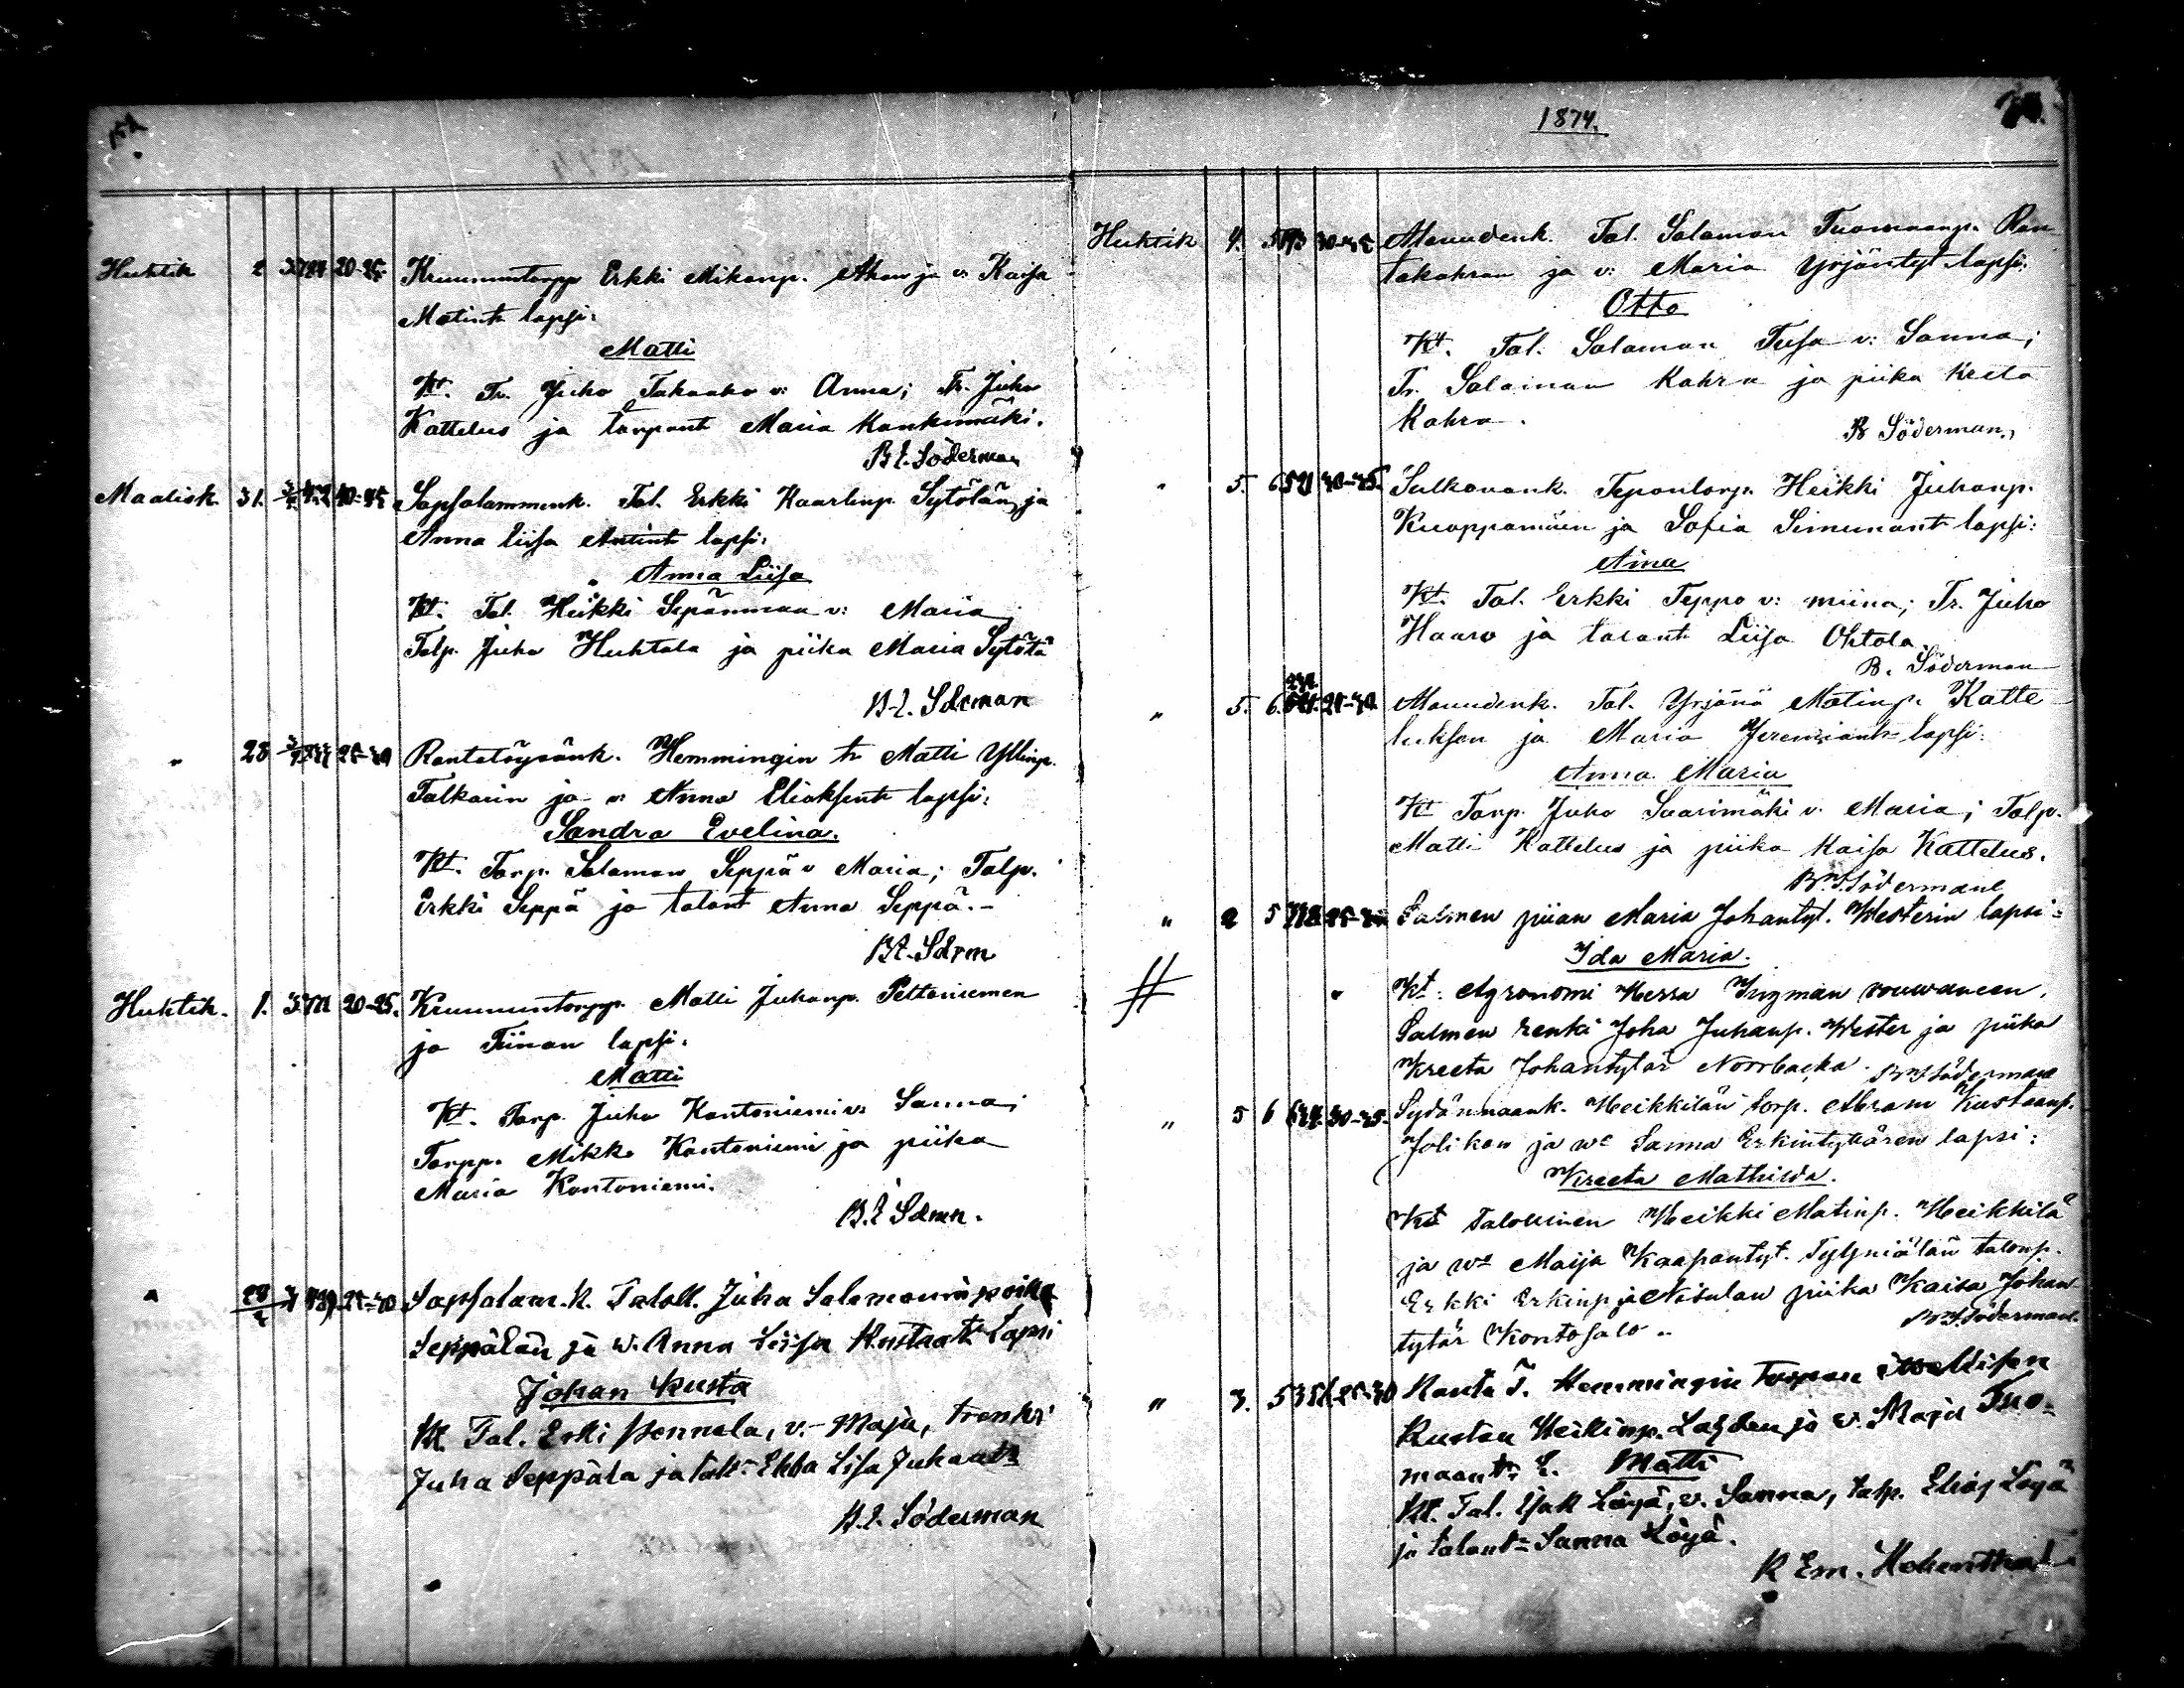 1874.
Huhtik 2 20-25. Kruununtorpp Erkki Mikonp. Ahon ja v: Kaisa
Matint. lapsi:
Matti
Kt. Tr. Juho v: Anna; Tr. Juho
Kattelus ja torpant Maria Kankinmäki.
B E. Söderman
Maalisk. 31. 40-45 Sapsalammenk. Tal. Erkki Kaarlinp. Sytölän ja
Anna Liisa Antint lapsi:
Anna Liisa
Kt. Tal. Heikki Sepänmaa v: Maria
Talp. Juho Huhtala ja piika Maria Sytölä
B.E. Sdrman
" 28 25-30 Rantatöysänk. Hemmingin tr Matti Yllinp.
Talkarin ja v: Anna Eliaksent lapsi:
Sandra Evelina.
Kt. Torp. Salamon Seppä v Maria; Talp.
Erkki Seppä ja talont Anna Seppä.-
B.E. Sdrm
Huhtik. 1. 20-25. Kruununtorpp. Matti Juhanp. Peltoniemen
ja Tiinan lapsi.
Matti
Kt. Torp. Juho Kontoniemi v: Sanna;
Torpp. Mikko Kontoniemi ja piika
Maria Kontoniemi.
B.E Sdmn.
" 28/2 25-30 Sapsalam.k. Taloll. Juha Salomoninpoika
Seppälän ja w. Anna Liisa Kustaat Lapsi
Johan Kusta
Kt. Tal. Erki Pennala, v.- Maja, trenki
Juha Seppälä ja talt- Ebba Lisa Juhant-
B.E. Söderman
Huhtik 4. Menudenk. Tal. Salamon Tuomaanp. Ran
takahran ja v: Maria Yrjäntyt. lapsi:
Otto
Kt. Tal. Salaman Tusa v: Sanna;
Tr. Salaman Kahra ja piika Kreeta
Kahra.
B Söderman.
" 5. 6. 521 40-45. Sulkavank. Tepontorp. Heikki Juhanp.
Kuoppamäen ja Sofia Simunant lapsi:
Aina
Kt. Tal. Erkki Teppo v: Miina; Tr. Juho
Haaro ja talont Liisa Ohtola.
B. Söderman
" 5. 6. Menudenk. Tal. Yrjänä Matinp. Katte
luksen ja Maria Jeremiant lapsi:
Anna Maria
Kt Torp. Juho Saarimäki v. Maria; Talp.
Matti Kattelus ja piika Kaisa Kattelus.
Södermane
" 2 5 Salmen piian Maria Johantyt. Westerin lapsi:
Ida Maria.
Kt: Agronomi Herra Ingman rouwaneen.
Salmen renki Joha Juhanp. Wester ja piika
Kreeta Johantytär Norrbacka. Södermane
" 5 6 30-35. Sydänmaank. Heikkilän torp. Abram Kustaanp.
Jolikon ja wo Sanna Erkintyttären lapsi:
Kreeta Mathilda.
Kt Talollinen Heikki Matinp. Heikkilä
ja wo Maija Kaapantyt. talonp.
Erkki Erkinp ja Nisulan piika Kaisa Johan
tytär Kontosalo.. Södermane
" 3. 5 25-30 Ranta T. Hemmingin torpan itsellisen
Kustan Heikinp. Lahden ja v. Maja Tuo-
maant- L. Matti
Kt. Tal. Isak Löyä, v. Sanna, talp. Elias Löyä
ja talont- Sanna Löyä.
K Em. Hohenthal